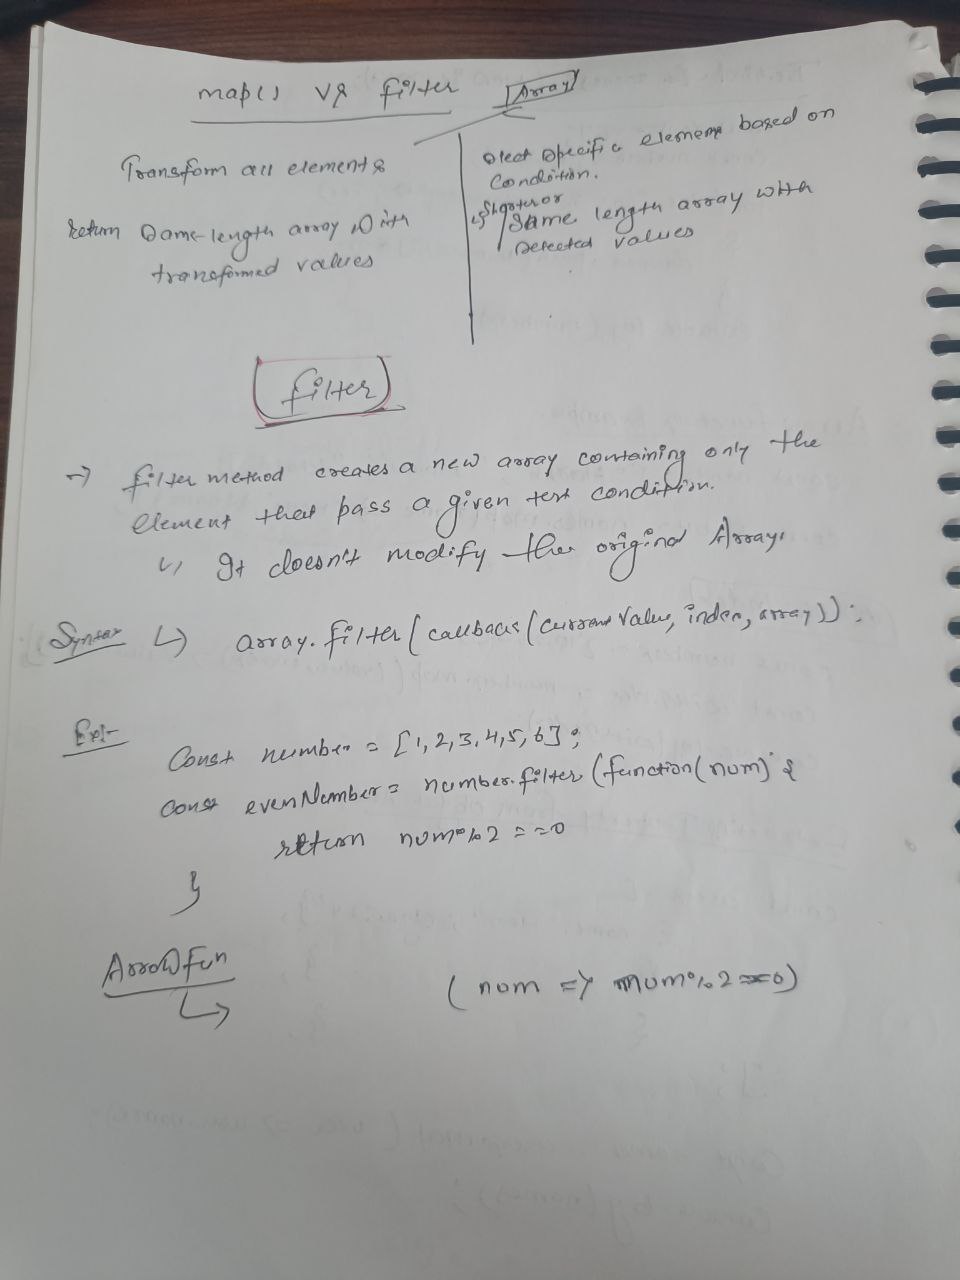 map() vs filter [Array]
Transform all elements
return same length array with
transformed values
select specific elements based on
condition.
↳ Shorter or
same length array with
selected values
filter
→ filter method creates a new array containing only the
element that pass a given test condition.
↳ It doesn't modify the original Array.
Syntax ↳ array.filter(callback(currentValue, index, array));
Ex:-
Const number = [1,2,3,4,5,6];
const evenNumber = number.filter(function(num) {
return num%2 ==0
}
Arrow fun
↳ (num => num%2==0)